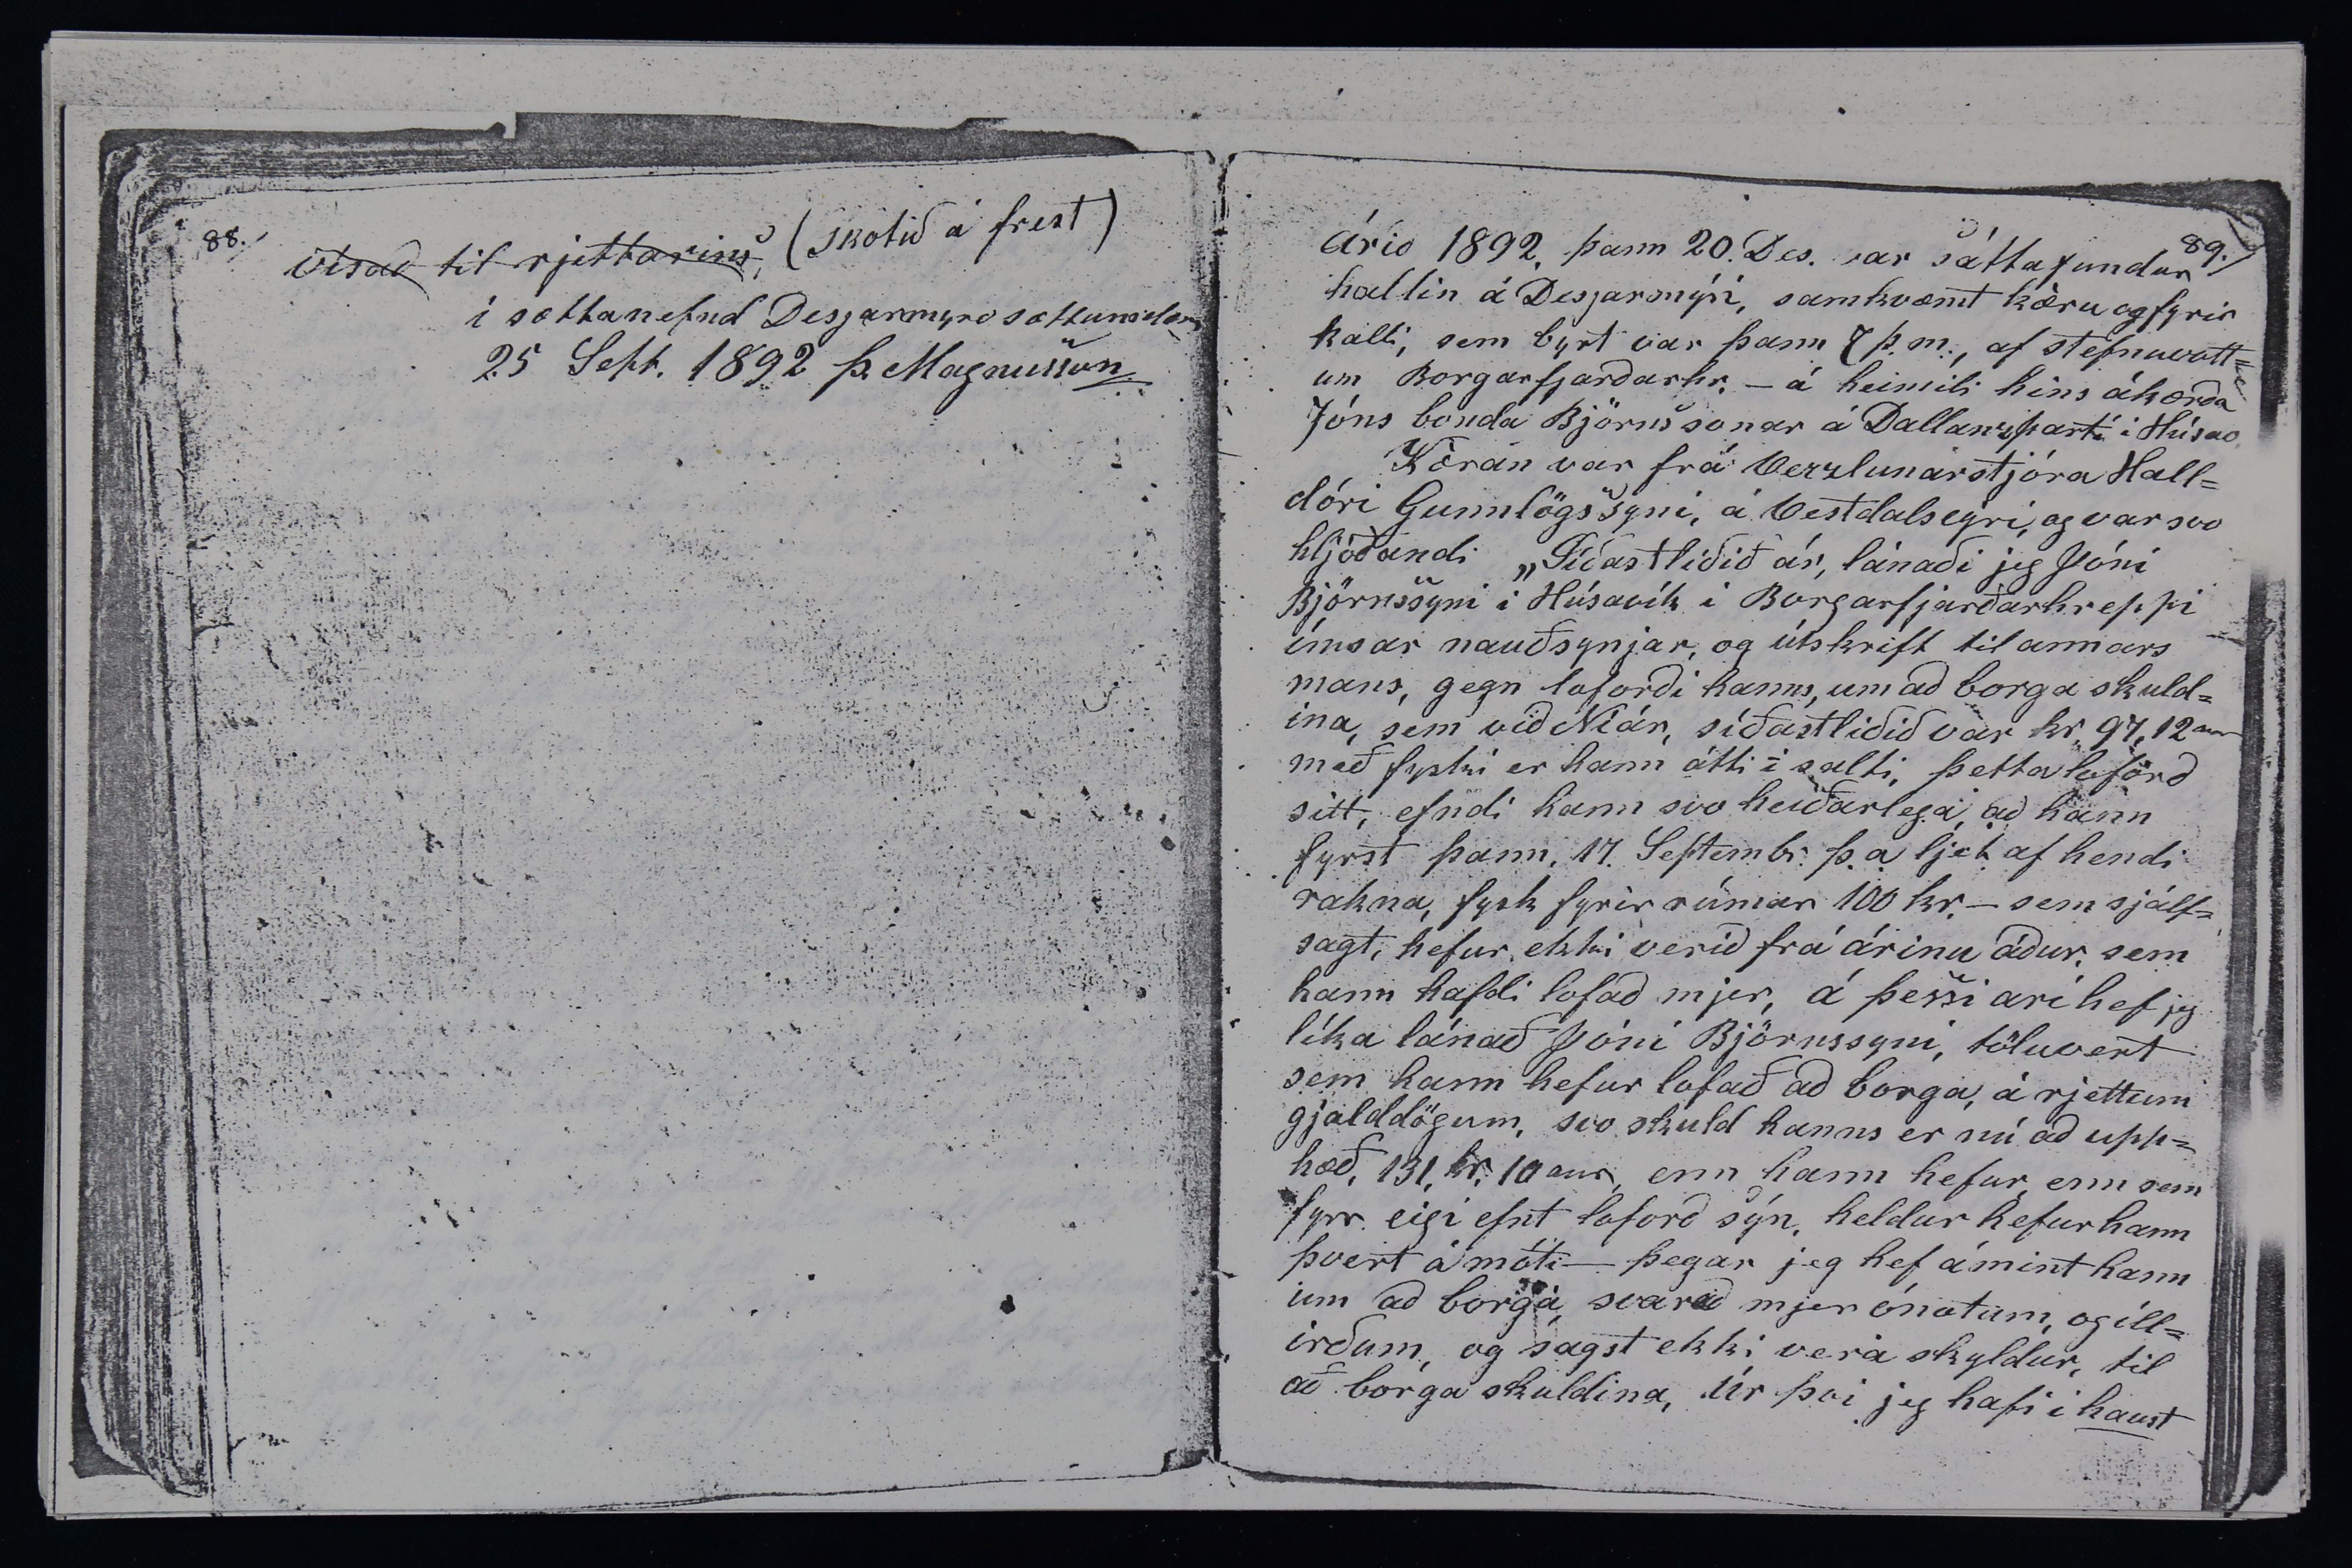 88.
vísað til rjettarins, (skotið á frest)
í sættanefnd Desjarmyro sættumdæm
25 Sept. 1892 Þ. Magnússon
89.
Árið 1892, þann 20. Des. var sáttafundur
hallin á Desjarmýri, samkvæmt kæru og fyrir
kalli, sem byrt var þann 7 þ.m., af stefnuvott=
um Borgarfjarðarhr. – á heimili hins ákærða
Jóns bonda Björnssonar á Dallandsparti í Húsav.
Kæran var frá Verzlunarstjóra Hall=
dóri Gunnlögssyni, á Vestdalseyri, og var svo
hljóðandi „Síðastliðið ár, lánaði jeg Jóni
Björnssyni í Húsavík í Borgarfjarðarhreppi
ímsar nauðsynjar, og útskrift til annars
mans, gegn loforði hanns, um að borga skuld=
ina, sem við Níár, síðastliðið var kr 97,12 aur
með fyski er hann átti í salti, þetta loforð
sitt, efndi hann svo heiðarlega, að hann
fyrst þann, 17. Septembr. þ.a ljet af hendi
rakna, fysk fyrir rúmar 100 kr. – sem sjálf=
sagt, hefur ekki verið frá árinu áður, sem
hann hafdi lofað mjer, á þessi ári hef jeg
líka lánað Jóni Björnssyni, töluvert
sem hann hefur lofað að borga, á rjettum
gjalddögum, svo skuld hanns er nú að upp=
hæð, 131, kr. 10 aur, enn hann hefur enn sem
fyrr eigi efnt loforð sýn, heldur hefur hann
þvert á móti – þegar jeg hef ámint hann
um að borga, svarað mjer ónotum, og íll=
irðum, og sagst ekki vera skyldur, til
að borga skuldina, Úr því jeg hafi í haust